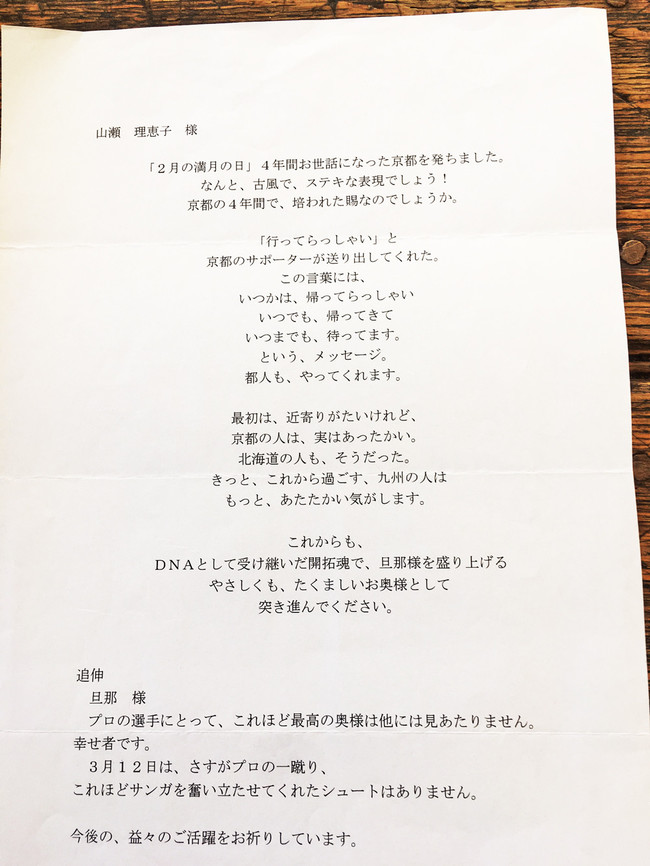 山瀬　理恵子　様
「２月の満月の日」４年間お世話になった京都を発ちました。
なんと、古風で、ステキな表現でしょう！
京都の４年間で、培われた賜なのでしょうか。
「行ってらっしゃい」と
京都のサポーターが送り出してくれた。
この言葉には、
いつかは、帰ってらっしゃい
いつでも、帰ってきて
いつまでも、待ってます。
という、メッセージ。
都人も、やってくれます。
最初は、近寄りがたいけれど、
京都の人は、実はあったかい。
北海道の人も、そうだった。
きっと、これから過ごす、九州の人は
もっと、あたたかい気がします。
これからも、
ＤＮＡとして受け継いだ開拓魂で、旦那様を盛り上げる
やさしくも、たくましいお奥様として
突き進んでください。
追伸
旦那　様
プロの選手にとって、これほど最高の奥様は他には見あたりません。
幸せ者です。
３月１２日は、さすがプロの一蹴り、
これほどサンガを奮い立たせてくれたシュートはありません。
今後の、益々のご活躍をお祈りしています。